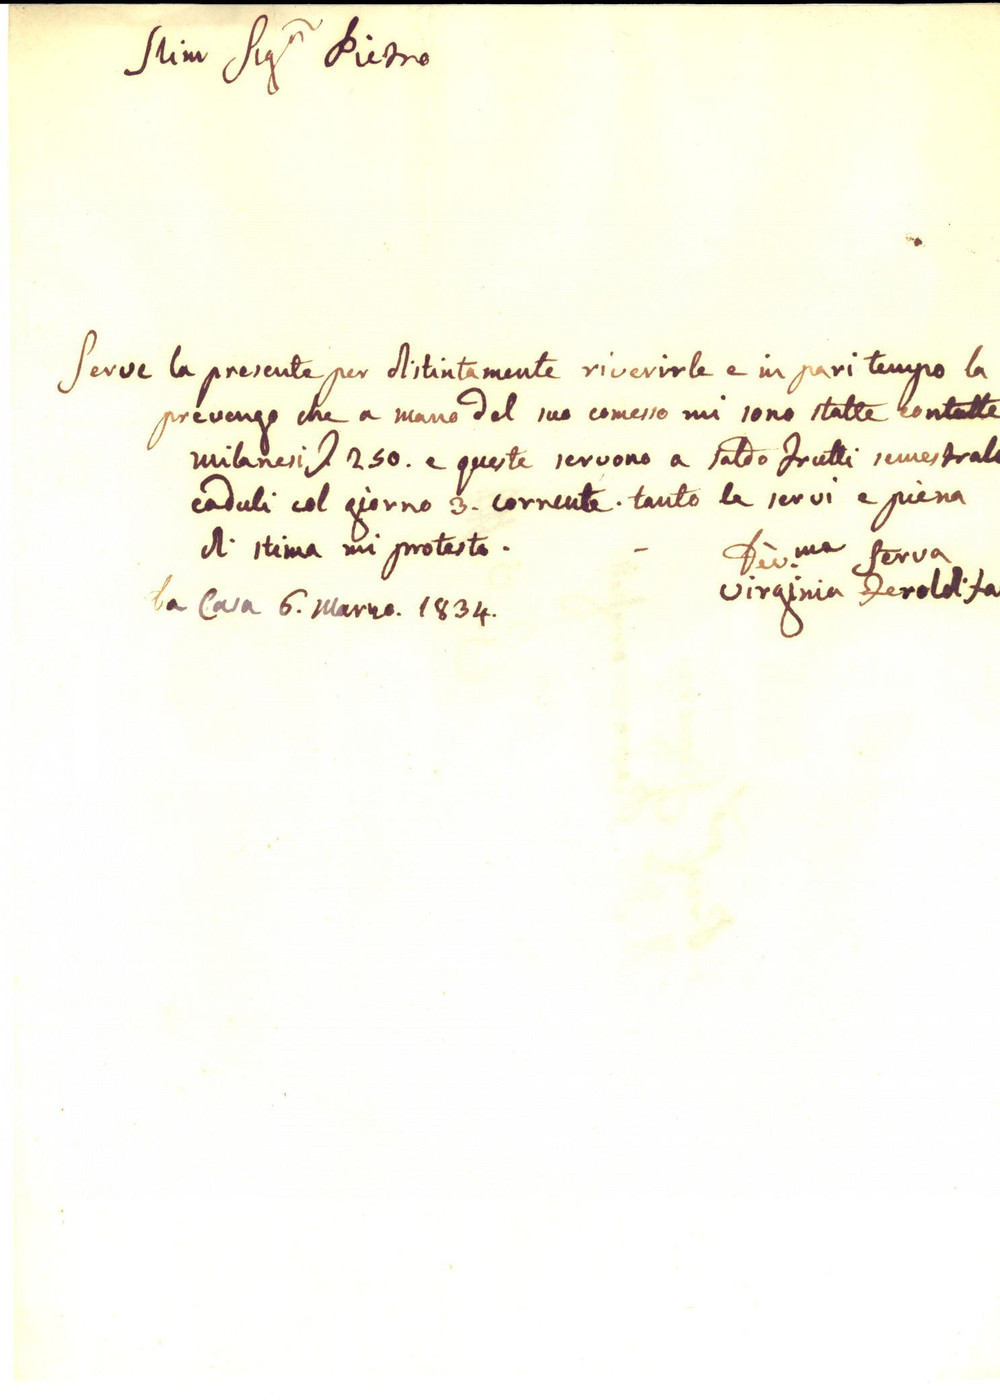 Stim Sigr Pietro
Serve la presente per distintamente riverirle e in pari tempo la
prevengo che a mano del suo comesso mi sono statte contatte
milanesi £ 250. e queste servono a saldo frutti semestrali
caduti col giorno 3. corrente. tanto le servi e piena
di stima mi protesto. –
Dev.ma Serva
Virginia
La Casa 6. Marzo. 1834.